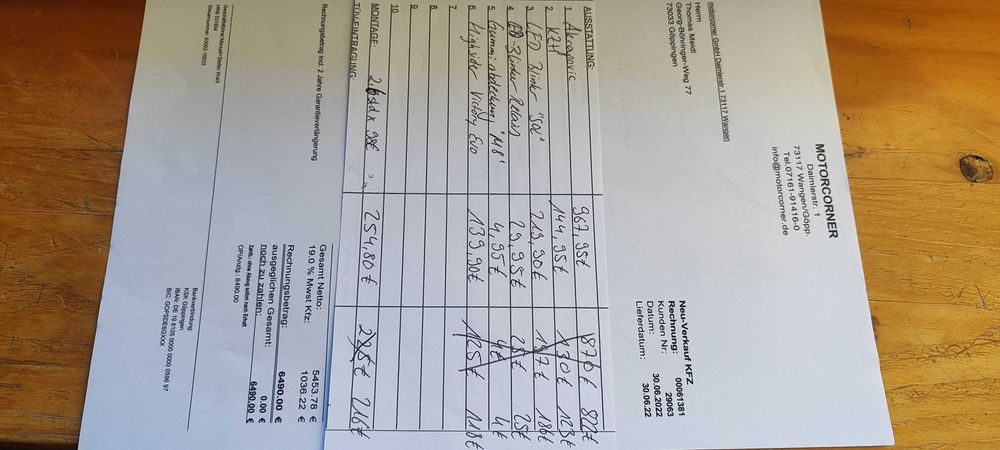 MOTORCORNER
Daimlerstr. 1
73117 Wangen/Göpp.
Tel.07161-91416-0
info@motorcorner.de
motorcorner GmbH Daimlerstr.1 73117 Wangen
Herrn
Thomas Meidl
Georg-Böhringer-Weg 77
73033 Göppingen
Neu-Verkauf KFZ
Rechnung: 00061381
Kunden Nr: 29063
Datum: 30.06.2022
Lieferdatum: 30.06.22
AUSSTATTUNG:
1. Akrapovic 967,95€ 870€ 822€
2. KZH 144,95€ 130€ 123€
3. LED Blinker "SQL" 219,90€ 197€ 186€
4. Blinker Relais 29,95€ 25€
5. Gummiabdeckung "M8" 4,95€ 4€ 4€
6. Highsider Victory Evo 139,90€ 125€ 118€
7.
8.
9.
10.
MONTAGE 98€ 254,80€ 216€
TÜV-EINTRAGUNG:
Gesamt Netto: 5453.78 €
19.0 % Mwst Kfz: 1036.22 €
Rechnungsbetrag incl. 2 Jahre Garantieverlängerung
Rechnungsbetrag: 6490.00 €
ausgeglichen Gesamt: 0.00 €
noch zu zahlen: 6490.00 €
Zahlb.: ohne Abzug sofort nach Erhalt
OP/Anzlg.: 6490.00
Bankverbindung:
KSK Göppingen
IBAN: DE 19 6105 0000 0000 0596 97
BIC: GOPSDE6GXXX
Geschäftsführer Manuel-Stefan Wahl
HRB 531604
Steuernummer: 63002-10033